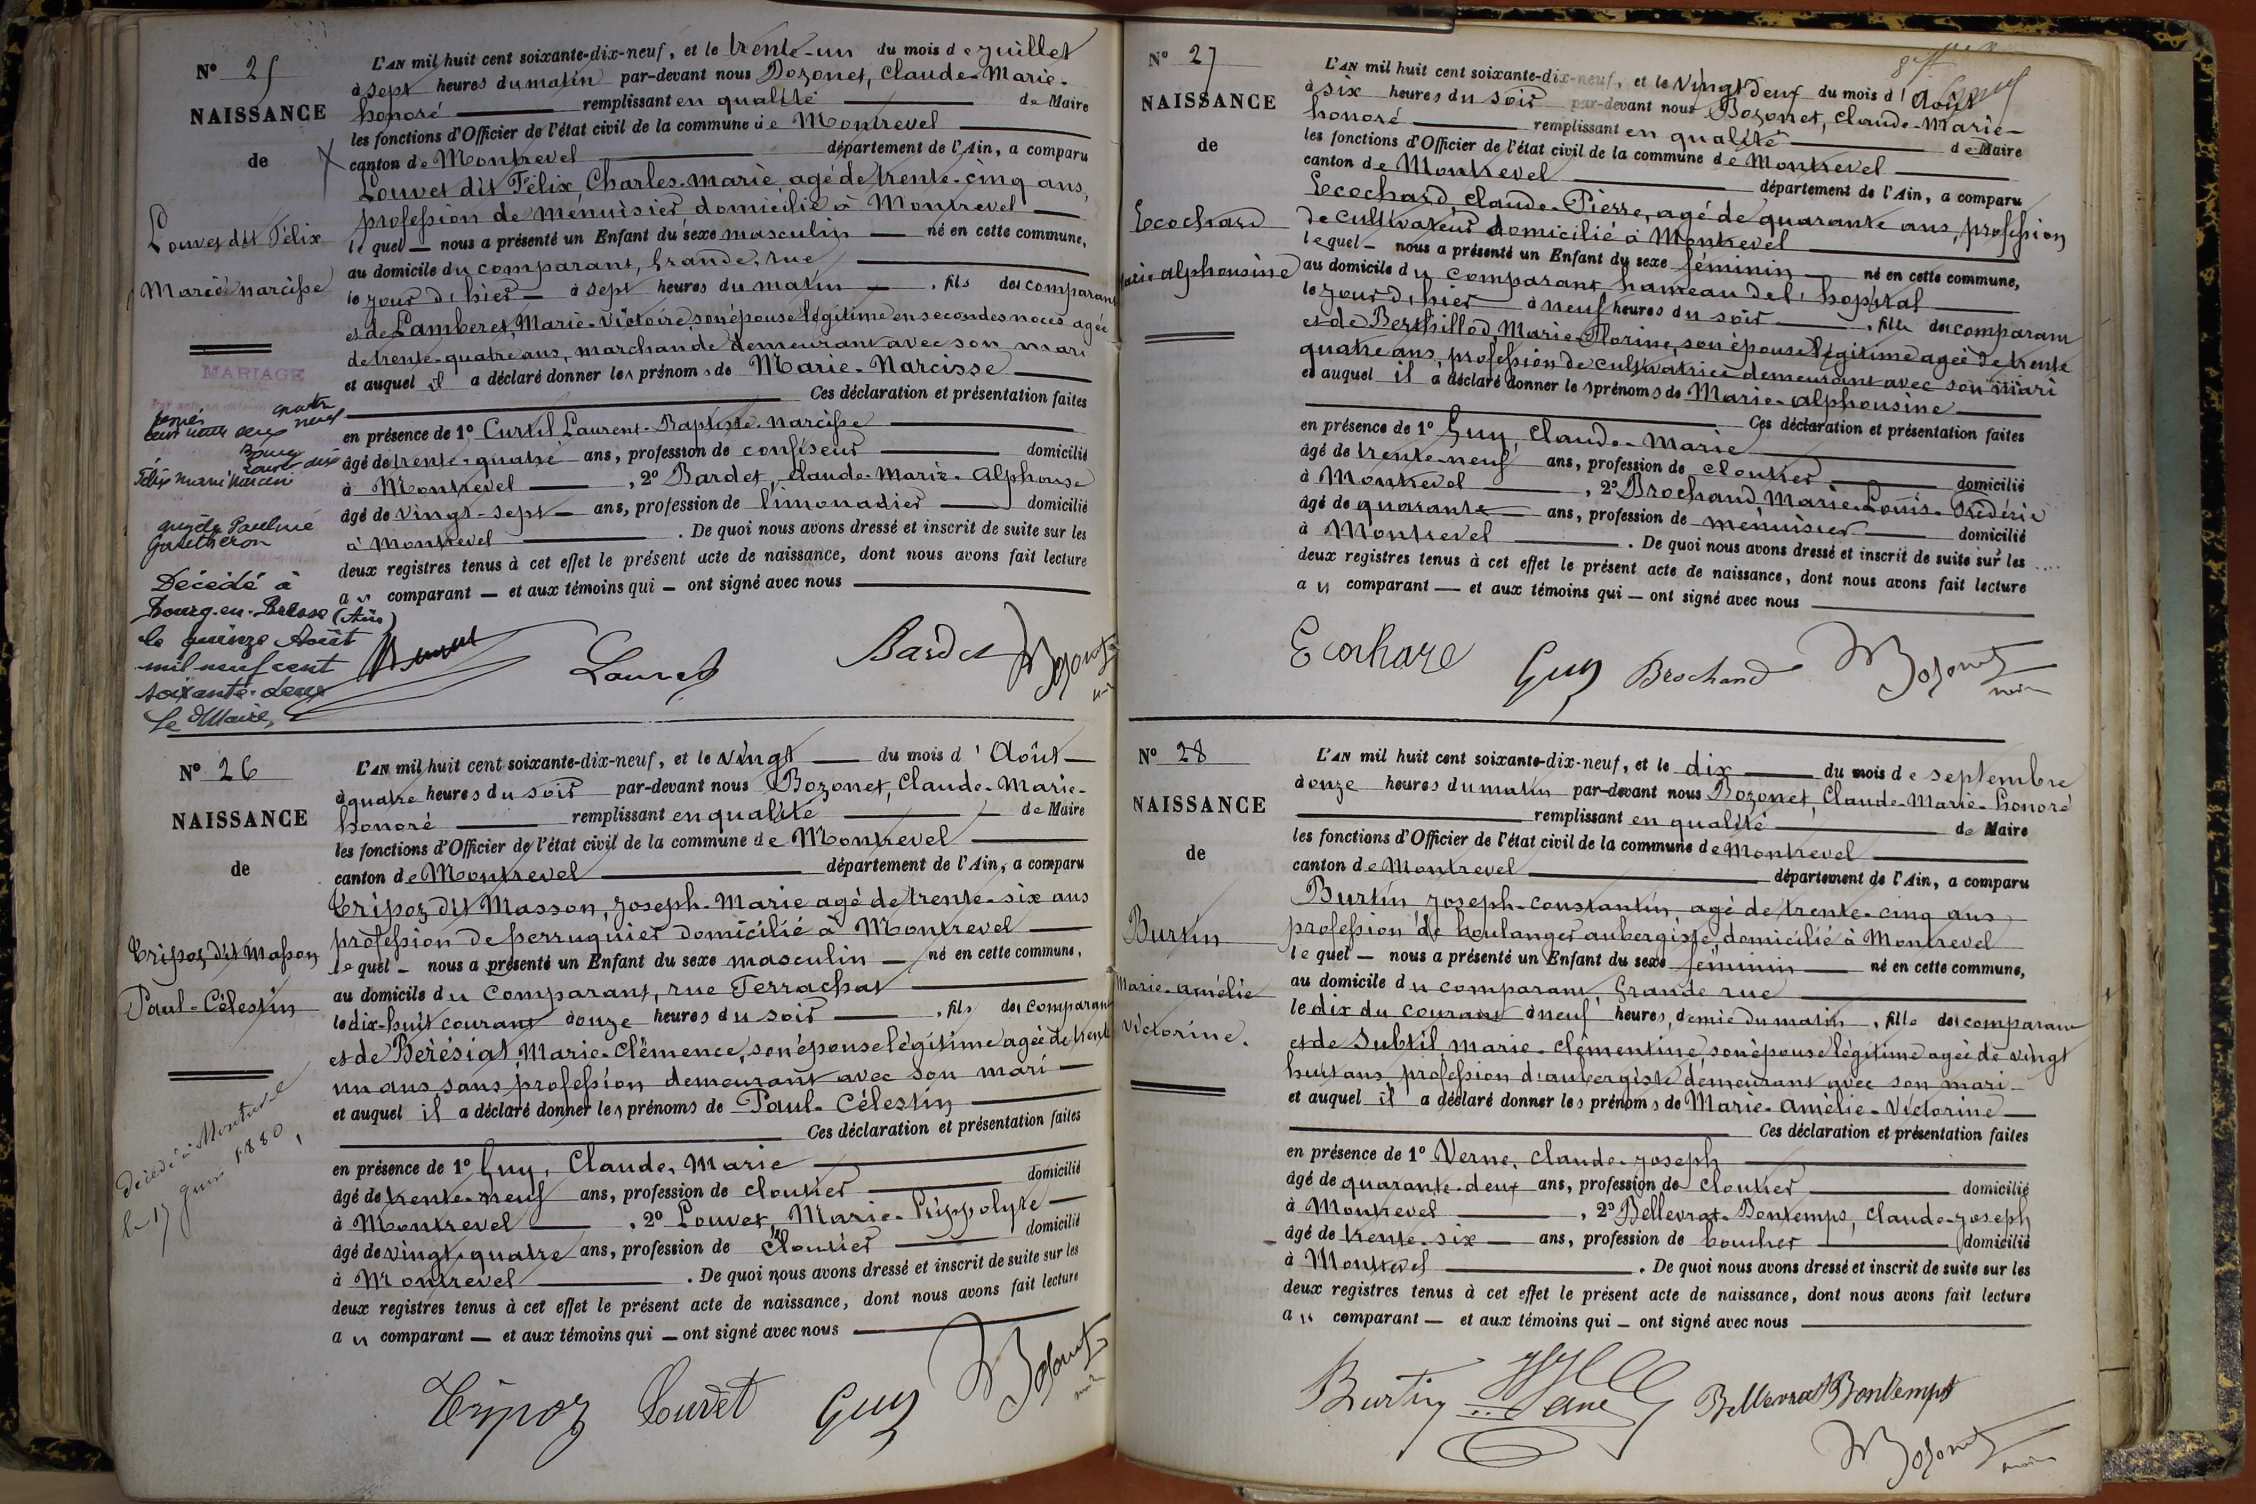 N° 25
NAISSANCE
de
Louvet dit Félix
Marie narcisse
MARIAGE
Décédé à
Bourg-en-Bresse (Ain)
le quinze Août
mil neuf cent
soixante-deux
Le Maire,
L'AN mil huit cent soixante-dix-neuf, et le trente-un du mois de juillet
à sept heures du matin par-devant nous Bozonet, Claude-Marie-
honoré remplissant en qualité de Maire
les fonctions d'Officier de l'état civil de la commune de Montrevel
canton de Montrevel département de l'Ain, a comparu
Louvet dit Félix, Charles-marie, agé de trente-cinq ans,
profession de ménuisier domicilié à Montrevel
lequel nous a présenté un Enfant du sexe masculin né en cette commune,
au domicile du comparant, Grande rue
le jour d'hier à sept heures du matin, fils des comparant
et de Lamberet, Marie-Victoire, son épouse légitime en secondes noces agée
de trente-quatre ans, marchande demeurant avec son mari
et auquel il a déclaré donner les prénoms de Marie-Narcisse
Ces déclaration et présentation faites
en présence de 1° Curtil Laurent-Baptiste-narcisse
âgé de trente-quatre ans, profession de confiseur domicilié
à Montrevel, 2° Bardet, Claude-Marie-Alphonse
âgé de vingt-sept ans, profession de limonadier domicilié
à Montrevel. De quoi nous avons dressé et inscrit de suite sur les
deux registres tenus à cet effet le présent acte de naissance, dont nous avons fait lecture
au comparant et aux témoins qui ont signé avec nous
Louvet
Bardet
Bozonet
N° 26
NAISSANCE
de
Tripoz dit Masson
Paul-Célestin
décédé à Montrevel
le 17 juin 1880,
L'AN mil huit cent soixante-dix-neuf, et le vingt du mois d'Août
à quatre heures du soir par-devant nous Bozonet, Claude-Marie-
honoré remplissant en qualité de Maire
les fonctions d'Officier de l'état civil de la commune de Montrevel
canton de Montrevel département de l'Ain, a comparu
Tripoz dit Masson, Joseph-Marie agé de trente-six ans
profession de perruquier domicilié à Montrevel
lequel nous a présenté un Enfant du sexe masculin né en cette commune,
au domicile du Comparant, rue Ferrachat
le dix-huit courant à onze heures du soir, fils des comparant
et de Berésiat Marie-Clémence, son épouse légitime agée de trente
un ans, sans profession demeurant avec son mari
et auquel il a déclaré donner les prénoms de Paul-Célestin
Ces déclaration et présentation faites
en présence de 1° Guy, Claude-Marie
âgé de trente-neuf ans, profession de cloutier domicilié
à Montrevel, 2° Louvet, Marie-hippolyte
âgé de vingt-quatre ans, profession de cloutier domicilié
à Montrevel. De quoi nous avons dressé et inscrit de suite sur les
deux registres tenus à cet effet le présent acte de naissance, dont nous avons fait lecture
au comparant et aux témoins qui ont signé avec nous
Tripoz Louvet Guy
Bozonet
N° 27
NAISSANCE
de
Ecochard
marie-alphonsine
L'AN mil huit cent soixante-dix-neuf, et le Vingt Deux du mois d'Août
à six heures du soir par-devant nous Bozonet, Claude-Marie-
honoré remplissant en qualité de Maire
les fonctions d'Officier de l'état civil de la commune de Montrevel
canton de Montrevel département de l'Ain, a comparu
Ecochard Claude-Pierre, agé de quarante ans, profession
de cultivateur domicilié à Montrevel
lequel nous a présenté un Enfant du sexe féminin né en cette commune,
au domicile du comparant hameau de l'hopital
le jour d'hier à neuf heures du soir, fille des comparant
et de Berthillod, Marie-Florine, son épouse légitime agée de trente
quatre ans, profession de cultivatrice demeurant avec son mari
et auquel il a déclaré donner les prénoms de Marie-alphonsine
Ces déclaration et présentation faites
en présence de 1° Guy, Claude-Marie
âgé de trente-neuf ans, profession de cloutier domicilié
à Montrevel, 2° Brochand, Marie-Louis-Frédéric
âgé de quarante ans, profession de ménuisier domicilié
à Montrevel. De quoi nous avons dressé et inscrit de suite sur les
deux registres tenus à cet effet le présent acte de naissance, dont nous avons fait lecture
au comparant et aux témoins qui ont signé avec nous
Ecochard Guy Brochand Bozonet
N° 28
NAISSANCE
de
Burtin
Marie-amélie
Victorine.
L'AN mil huit cent soixante-dix-neuf, et le dix du mois de septembre
à onze heures du matin par-devant nous Bozonet, Claude-Marie-honoré
remplissant en qualité de Maire
les fonctions d'Officier de l'état civil de la commune de Montrevel
canton de Montrevel département de l'Ain, a comparu
Burtin Joseph-constantin, agé de trente-cinq ans
profession de boulanger aubergiste, domicilié à Montrevel
lequel nous a présenté un Enfant du sexe féminin né en cette commune,
au domicile du comparant Grande rue
le dix du courant à neuf heures, demie du matin, fille des comparant
et de Subtil marie-clémentine, son épouse légitime agée de vingt
huit ans profession d'aubergiste demeurant avec son mari
et auquel il a déclaré donner les prénoms de Marie-Amélie-Victorine
Ces déclaration et présentation faites
en présence de 1° Verne, claude-joseph
âgé de quarante-deux ans, profession de cloutier domicilié
à Montrevel, 2° Bellevrat-Bontemps, claude-joseph
âgé de trente-six ans, profession de boucher domicilié
à Montrevel. De quoi nous avons dressé et inscrit de suite sur les
deux registres tenus à cet effet le présent acte de naissance, dont nous avons fait lecture
au comparant et aux témoins qui ont signé avec nous
Burtin Bellevrat Bontemps
Bozonet